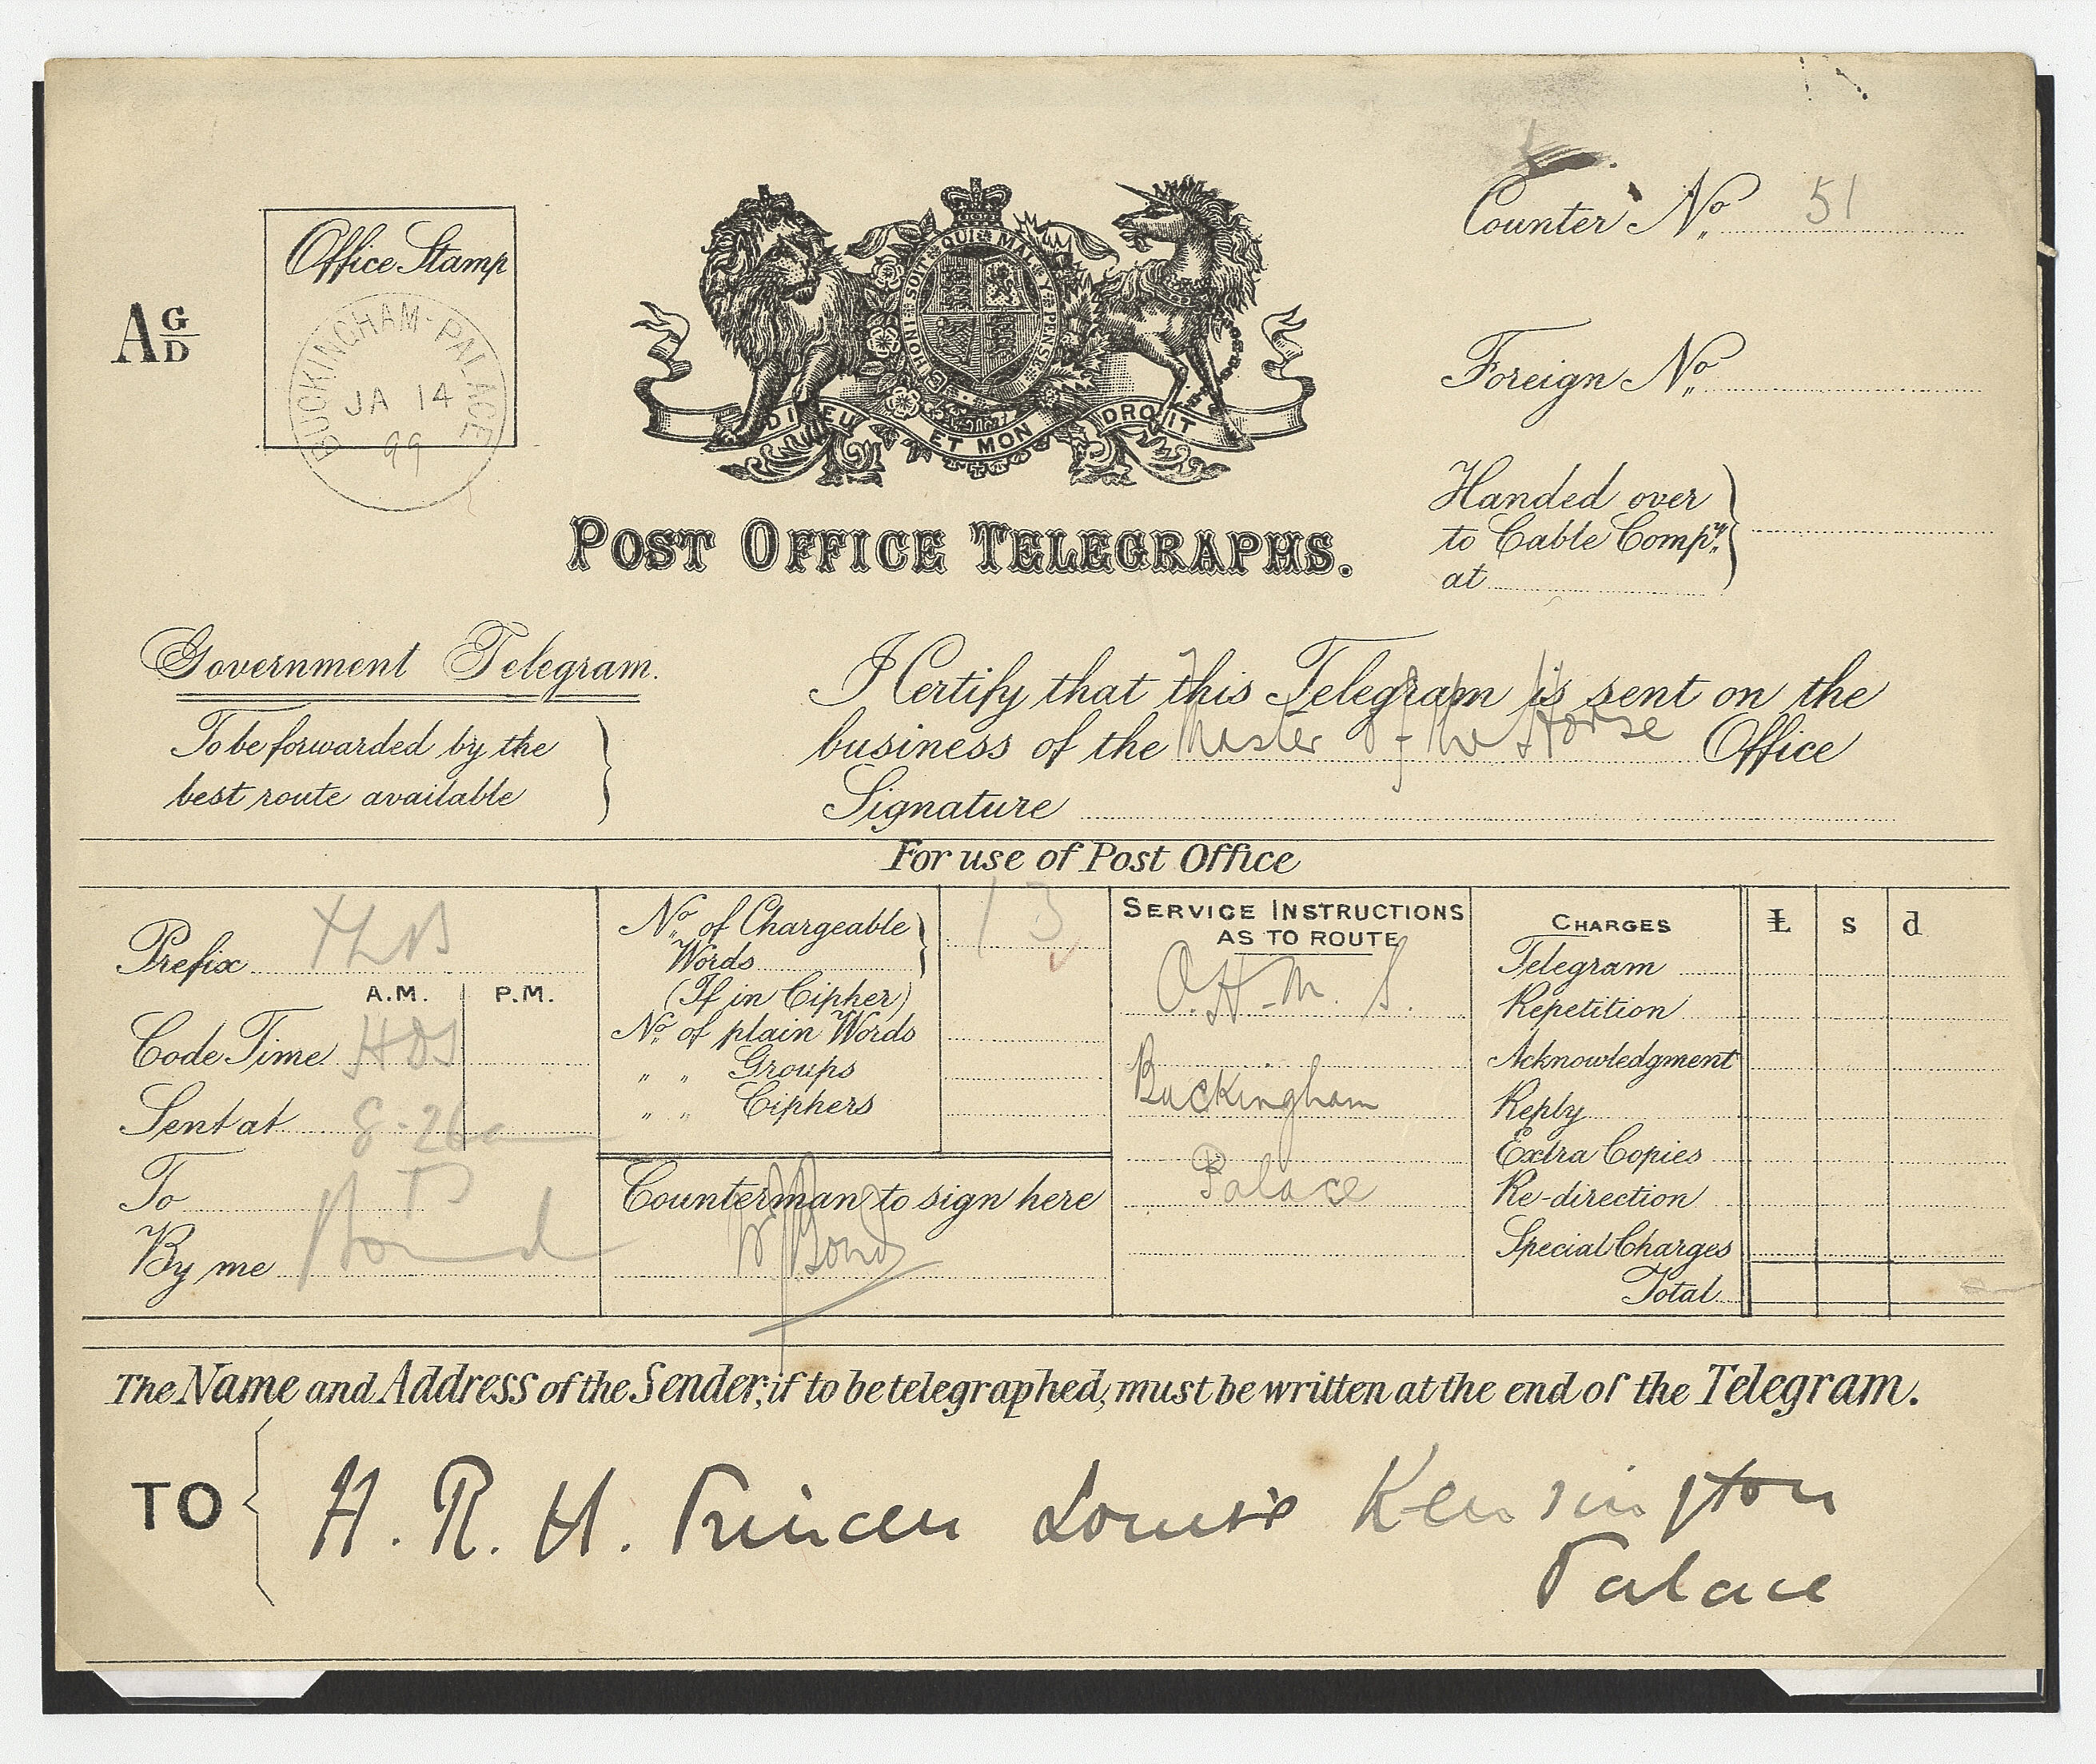 Office Stamp
BUCKINGHAM-PALACE
JA 14
99
A G/D
HONI SOIT QUI MAL Y PENSE
DIEU ET MON DROIT
Counter No. 51
Foreign No.
Handed over
to Cable Compy.
at
POST OFFICE TELEGRAPHS.
Government Telegram.
To be forwarded by the
best route available
I Certify that this Telegram is sent on the
business of the Master of the Horse Office
Signature
For use of Post Office
Prefix
A.M. P.M.
Code Time
Sent at 8-26am
To TS
By me
No. of Chargeable
Words
13
(If in Cipher)
No. of plain Words
" " Groups
" " Ciphers
Counterman to sign here
W Bond
SERVICE INSTRUCTIONS
AS TO ROUTE
O.H.M.S.
Buckingham
Palace
CHARGES £ s d
Telegram
Repetition
Acknowledgment
Reply
Extra Copies
Re-direction
Special Charges
Total
The Name and Address of the Sender, if to be telegraphed, must be written at the end of the Telegram.
TO H. R. H. Princess Louise Kensington
Palace